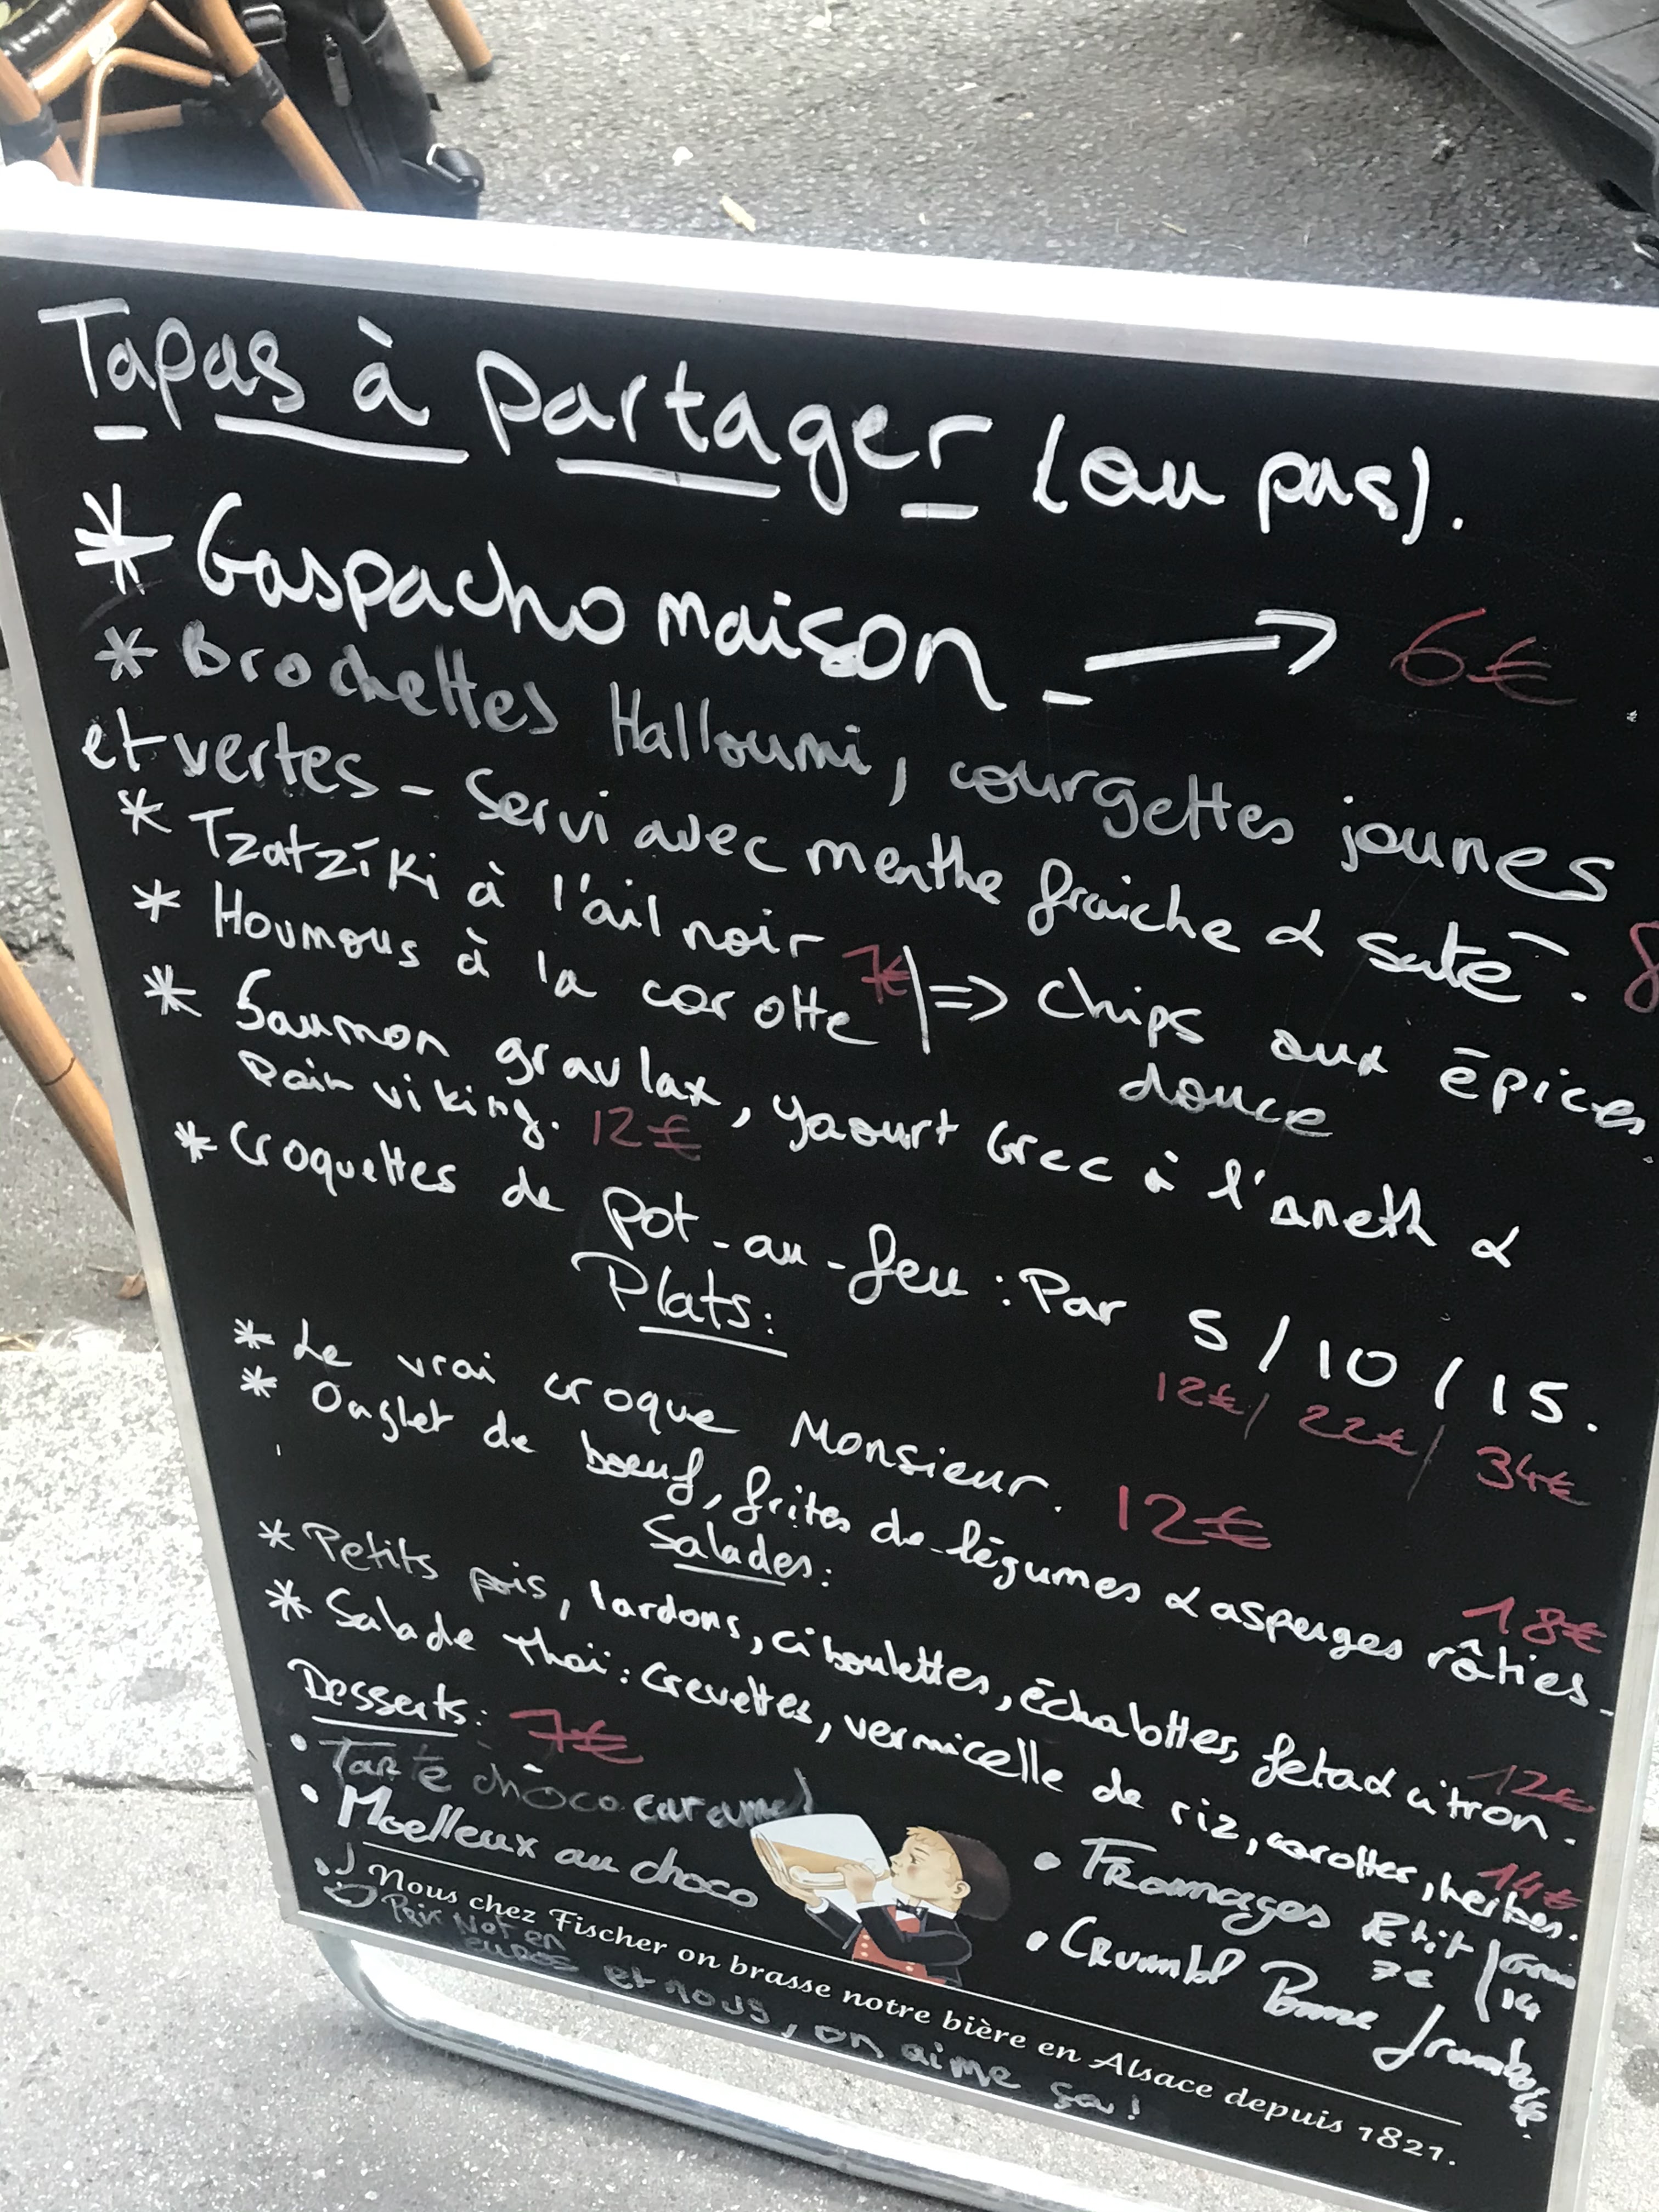 Tapas à partager (ou pas).
* Gaspacho maison - → 6€.
* Brochettes Halloumi, courgettes jaunes
et vertes - Servi avec menthe fraiche & saté. 8
* Tzatziki à l'ail noir
* Houmous à la carotte 7€ |⇒ Chips aux épices
douce
* Saumon gravlax, yaourt Grec à l'aneth &
Pain viking. 12€
* Croquettes de pot-au-feu : Par 5 / 10 / 15.
12€ / 22€ / 34€
Plats :
* Le vrai croque Monsieur. 12€
* Onglet de bœuf, frites de légumes & asperges râties - 18€
Salades :
* Petits pois, lardons, ciboulettes, échalottes, feta & citron. 12€
* Salade Thaï : Crevettes, vermicelle de riz, carottes, herbes. 14€
Desserts : 7€
• Tarte choco caramel
• Moelleux au choco
• Fromages Petit / Gran
7€ / 14
• Crumbl Pomme framboise
Nous chez Fischer on brasse notre bière en Alsace depuis 1821.
Prix Not en
euros et nous, on aime ça !